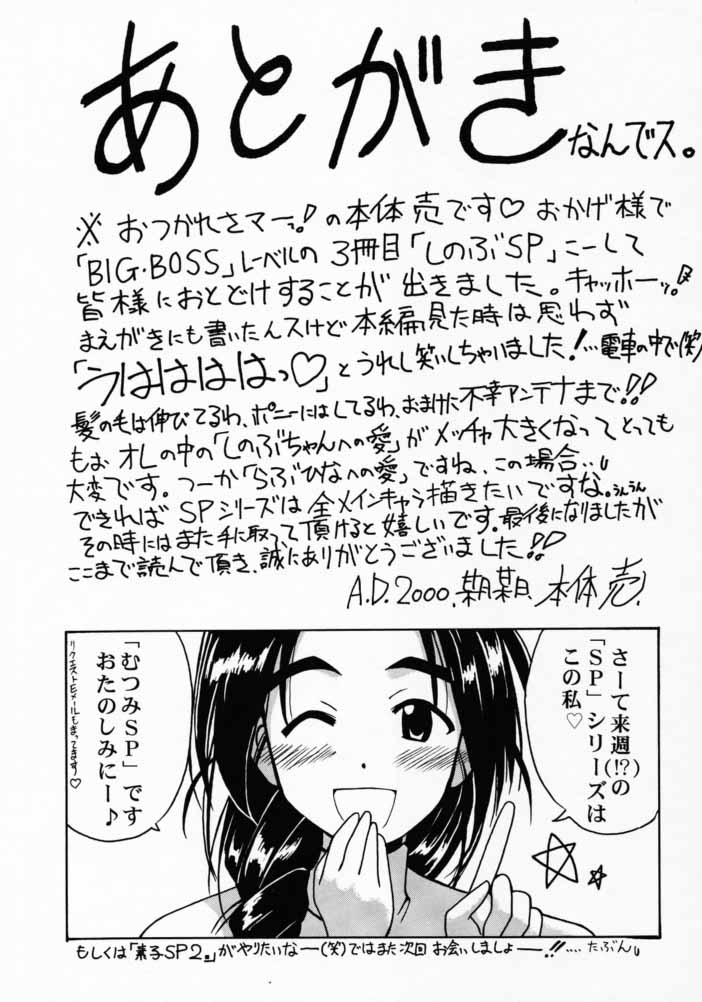 あとがき
なんでス。
※おつかれさマーっ!の本体売です♡おかげ様で
「BIG・BOSS」レーベルの3冊目「しのぶSP」こーして
皆様におとどけすることが出きました。キャッホーッ!
まえがきにも書いたんスけど本編見た時は思わず
「うはははっ♡」とうれし笑いしちゃいました!…電車の中で(笑)
髪の毛は伸びてるわ、ポニーにはしてるわ、おまけに不幸アンテナまで!!
もぉオレの中の「しのぶちゃんへの愛」がメッチャ大きくなってとっても
大変です。つーか「らぶひなへの愛」ですね、この場合…。
できればSPシリーズは全メインキャラ描きたいですな。うんうん
その時にはまた手に取って頂けると嬉しいです。最後になりましたが
ここまで読んで頂き、誠にありがとうございました!!
A.D.2000.某月某日、本体売.
さーて来週(!?)の
「SP」シリーズは
この私♡
「むつみSP」です
おたのしみにー♪
リクエストEメールもまってます♡
もしくは「素子SP2。」がやりたいなー(笑)ではまた次回お会いしましょー!!….たぶん。